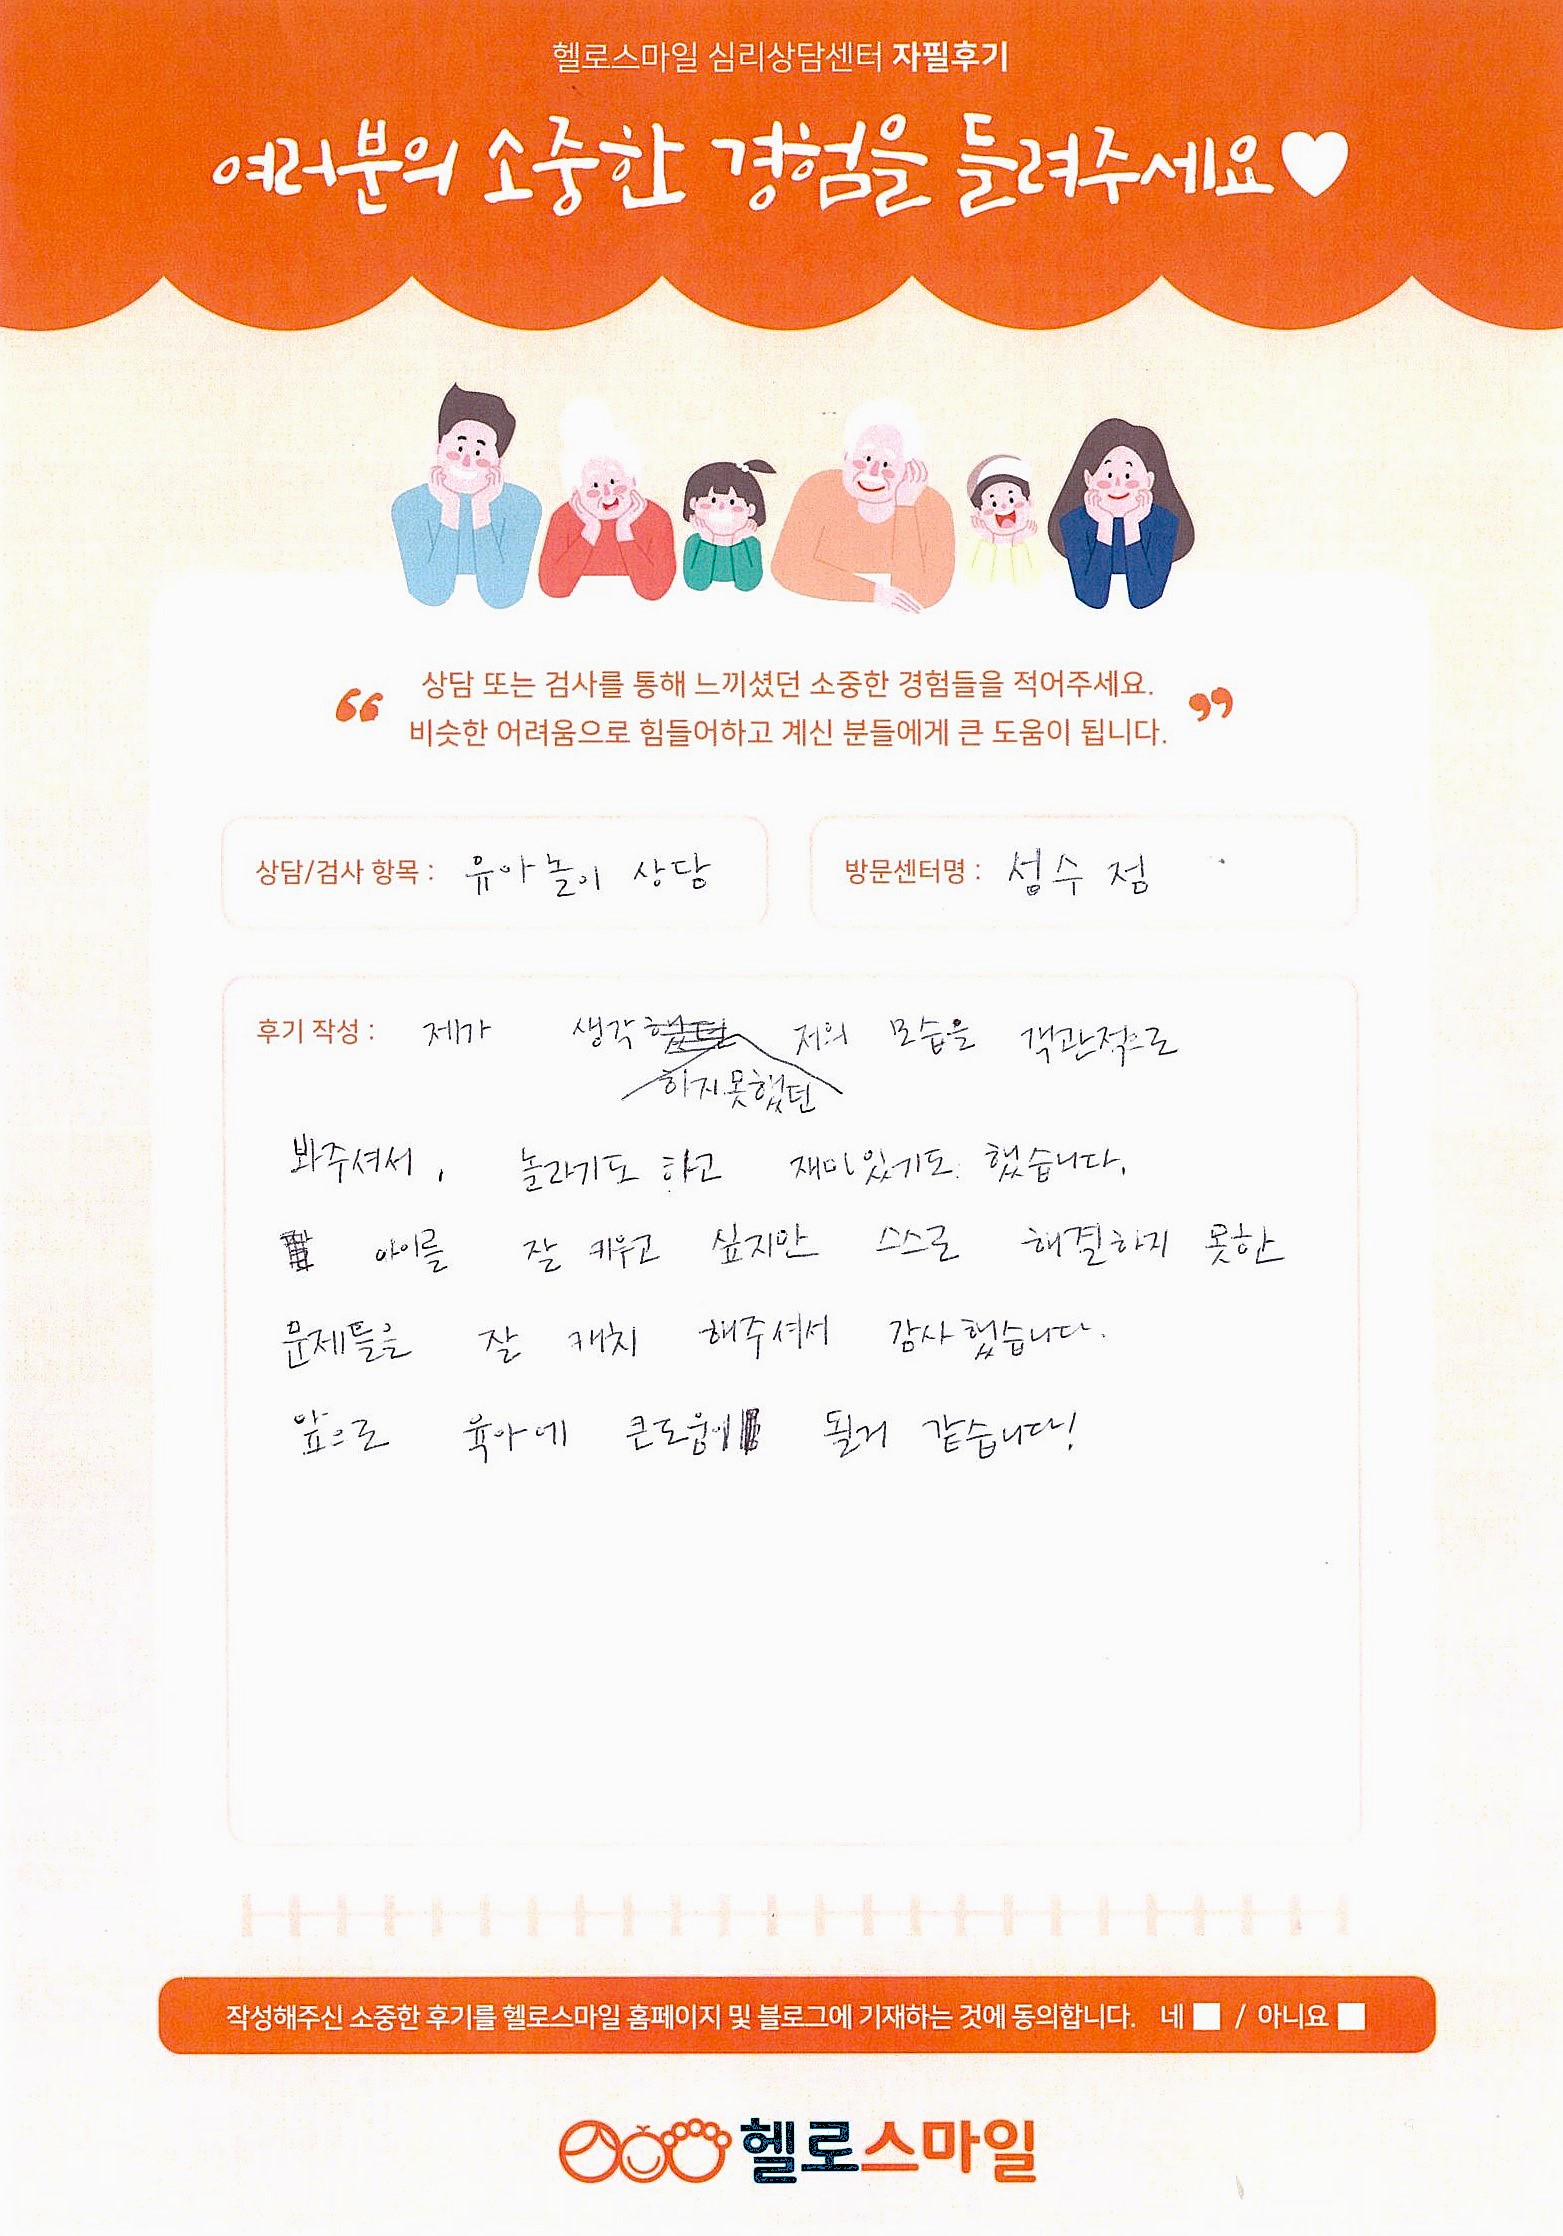 헬로스마일 심리상담센터 자필후기
여러분의 소중한 경험을 들려주세요♥
상담 또는 검사를 통해 느끼셨던 소중한 경험들을 적어주세요.
비슷한 어려움으로 힘들어하고 계신 분들에게 큰 도움이 됩니다.
상담/검사 항목 : 유아놀이 상담
방문센터명 : 성수점
후기 작성 : 제가 생각했던 저의 모습을 객관적으로
하지못했던
봐주셔서, 놀라기도 하고 재미있기도 했습니다.
아이를 잘 키우고 싶지만 스스로 해결하지 못한
문제들을 잘 캐치 해주셔서 감사했습니다.
앞으로 육아에 큰도움이 될거 같습니다!
작성해주신 소중한 후기를 헬로스마일 홈페이지 및 블로그에 기재하는 것에 동의합니다. 네 ■ / 아니요 ■
헬로스마일